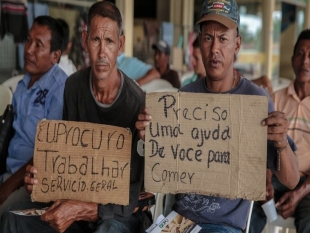 EUPROCURO
Trabalhar
SERVICO GERAL
Preciso
Uma ajuda
De Você para
Comer